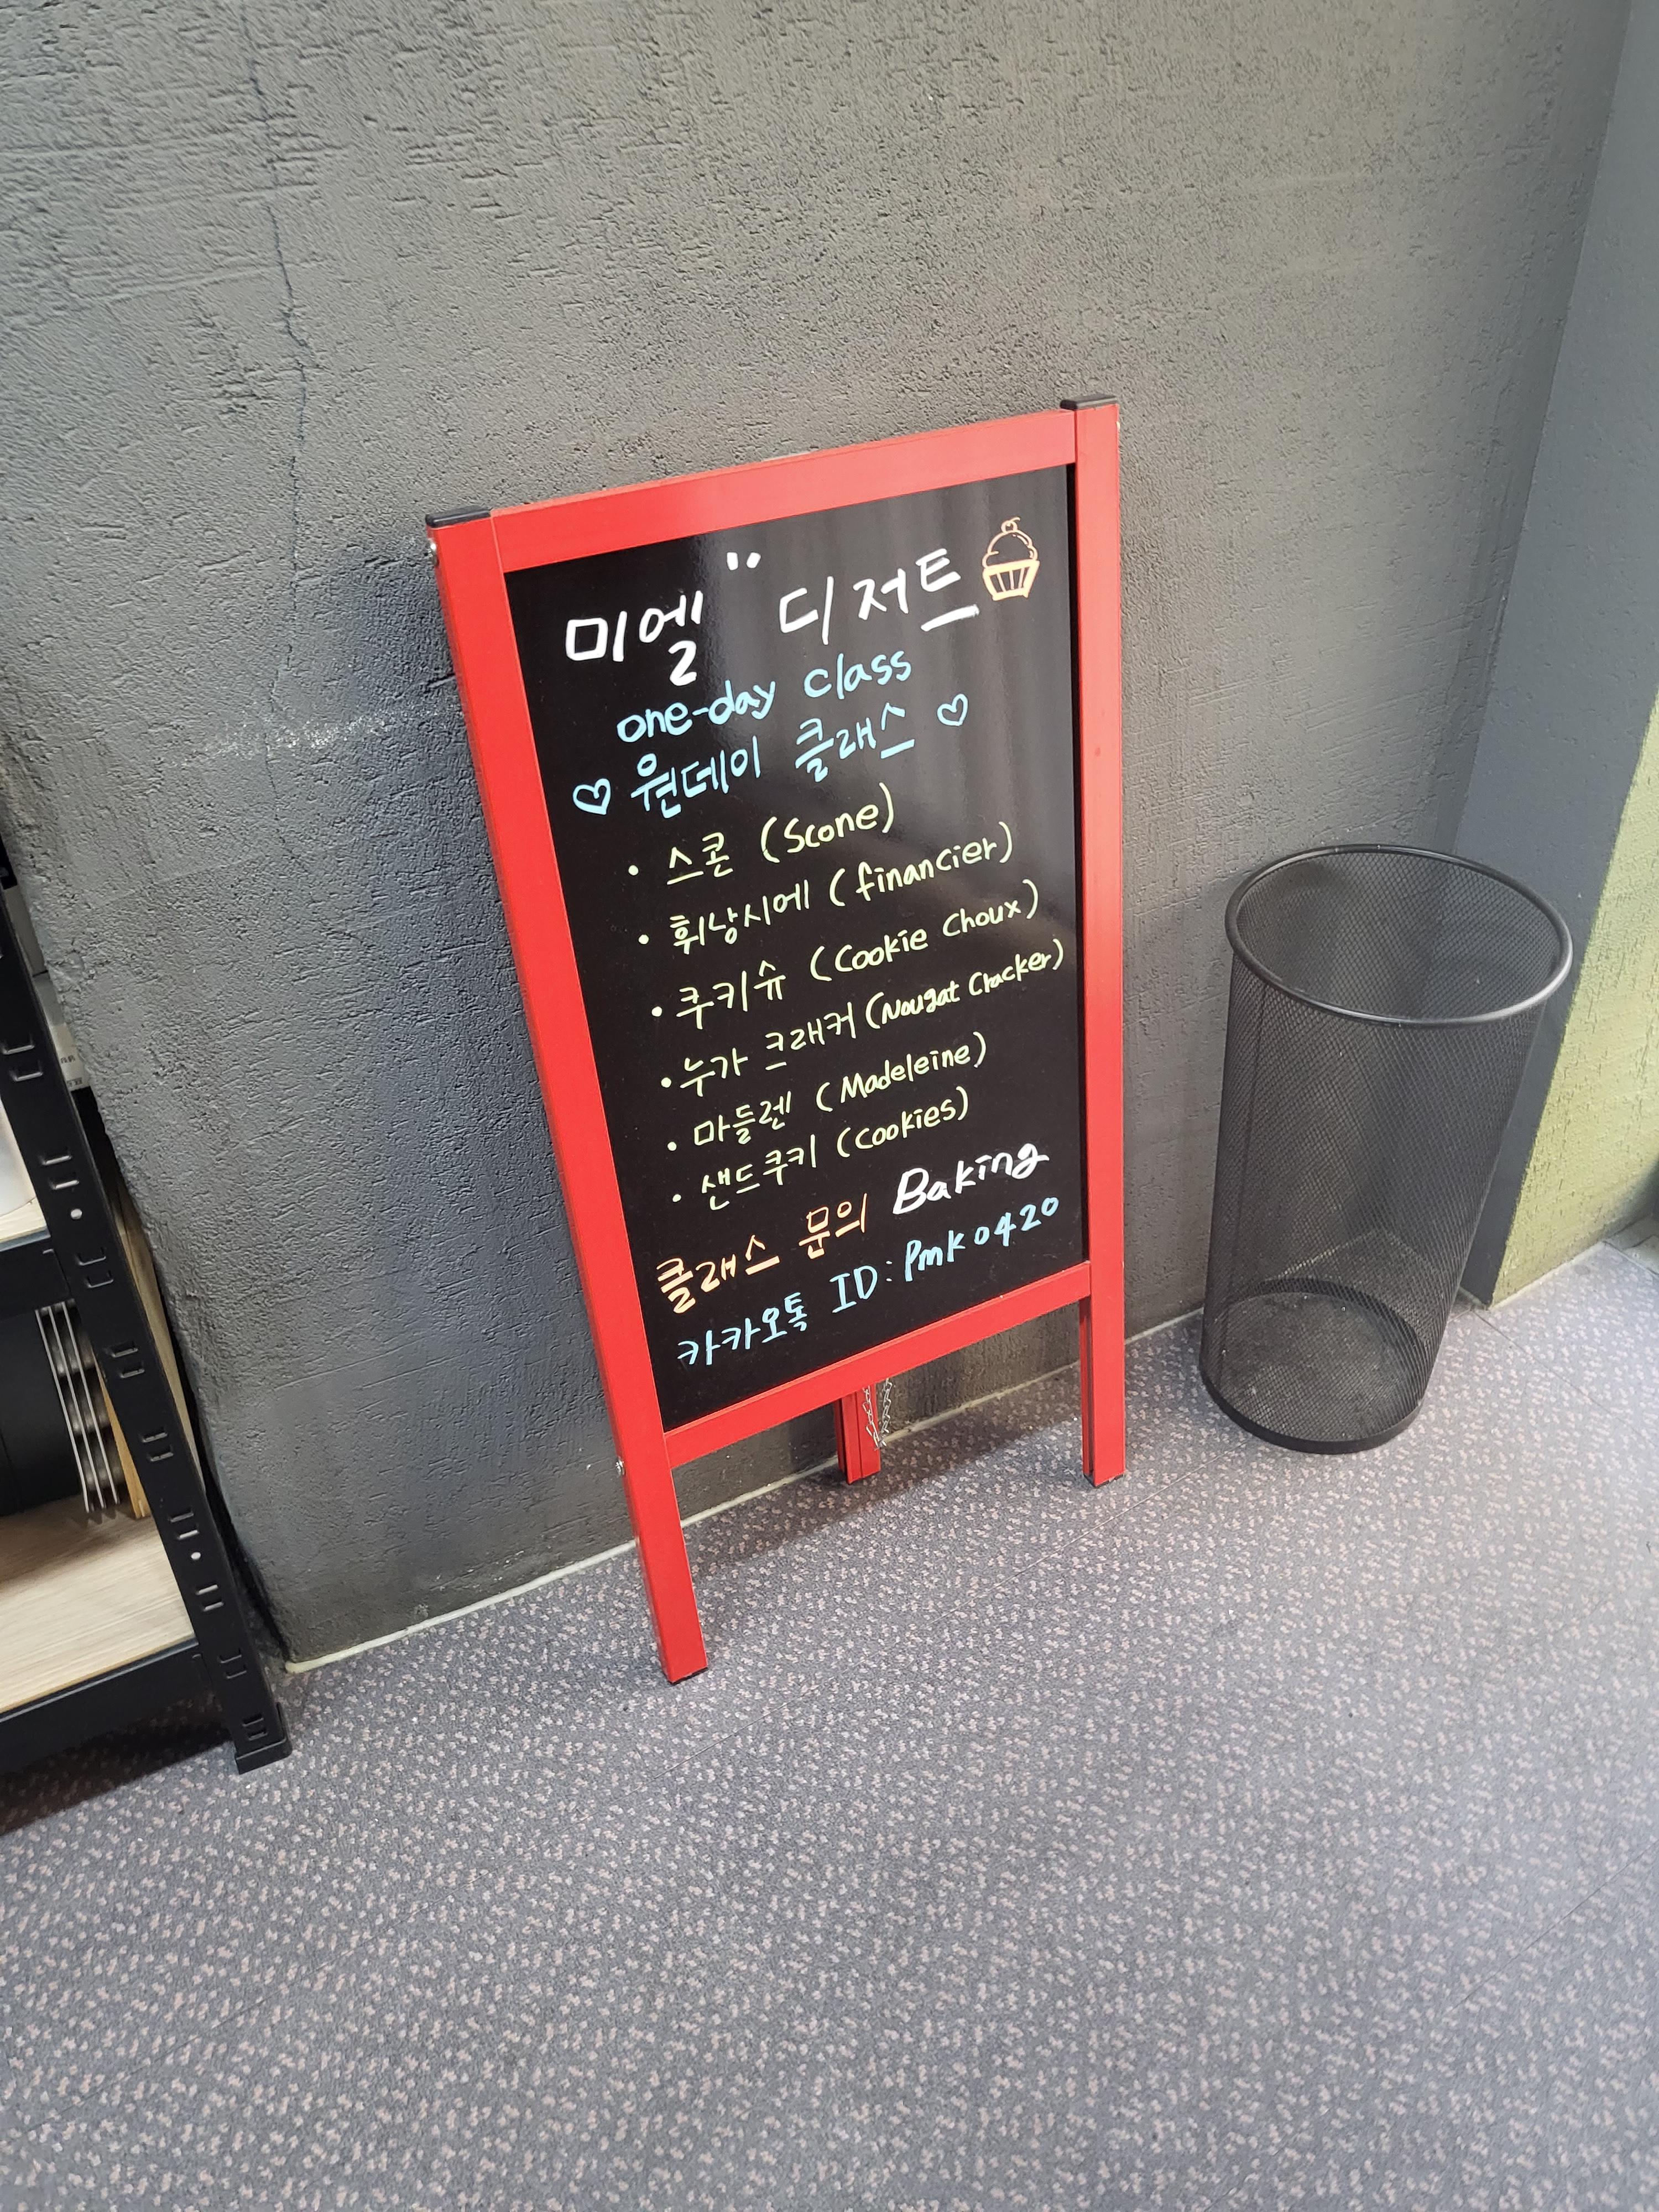 미엘 " 디저트
one-day class
♡ 원데이 클래스 ♡
• 스콘 (Scone)
• 휘낭시에 (financier)
• 쿠키슈 (Cookie Choux)
• 누가 크래커 (Nougat Cracker)
• 마들렌 (Madeleine)
• 샌드쿠키 (Cookies)
클래스 문의 Baking
카카오톡 ID: Pmk0420